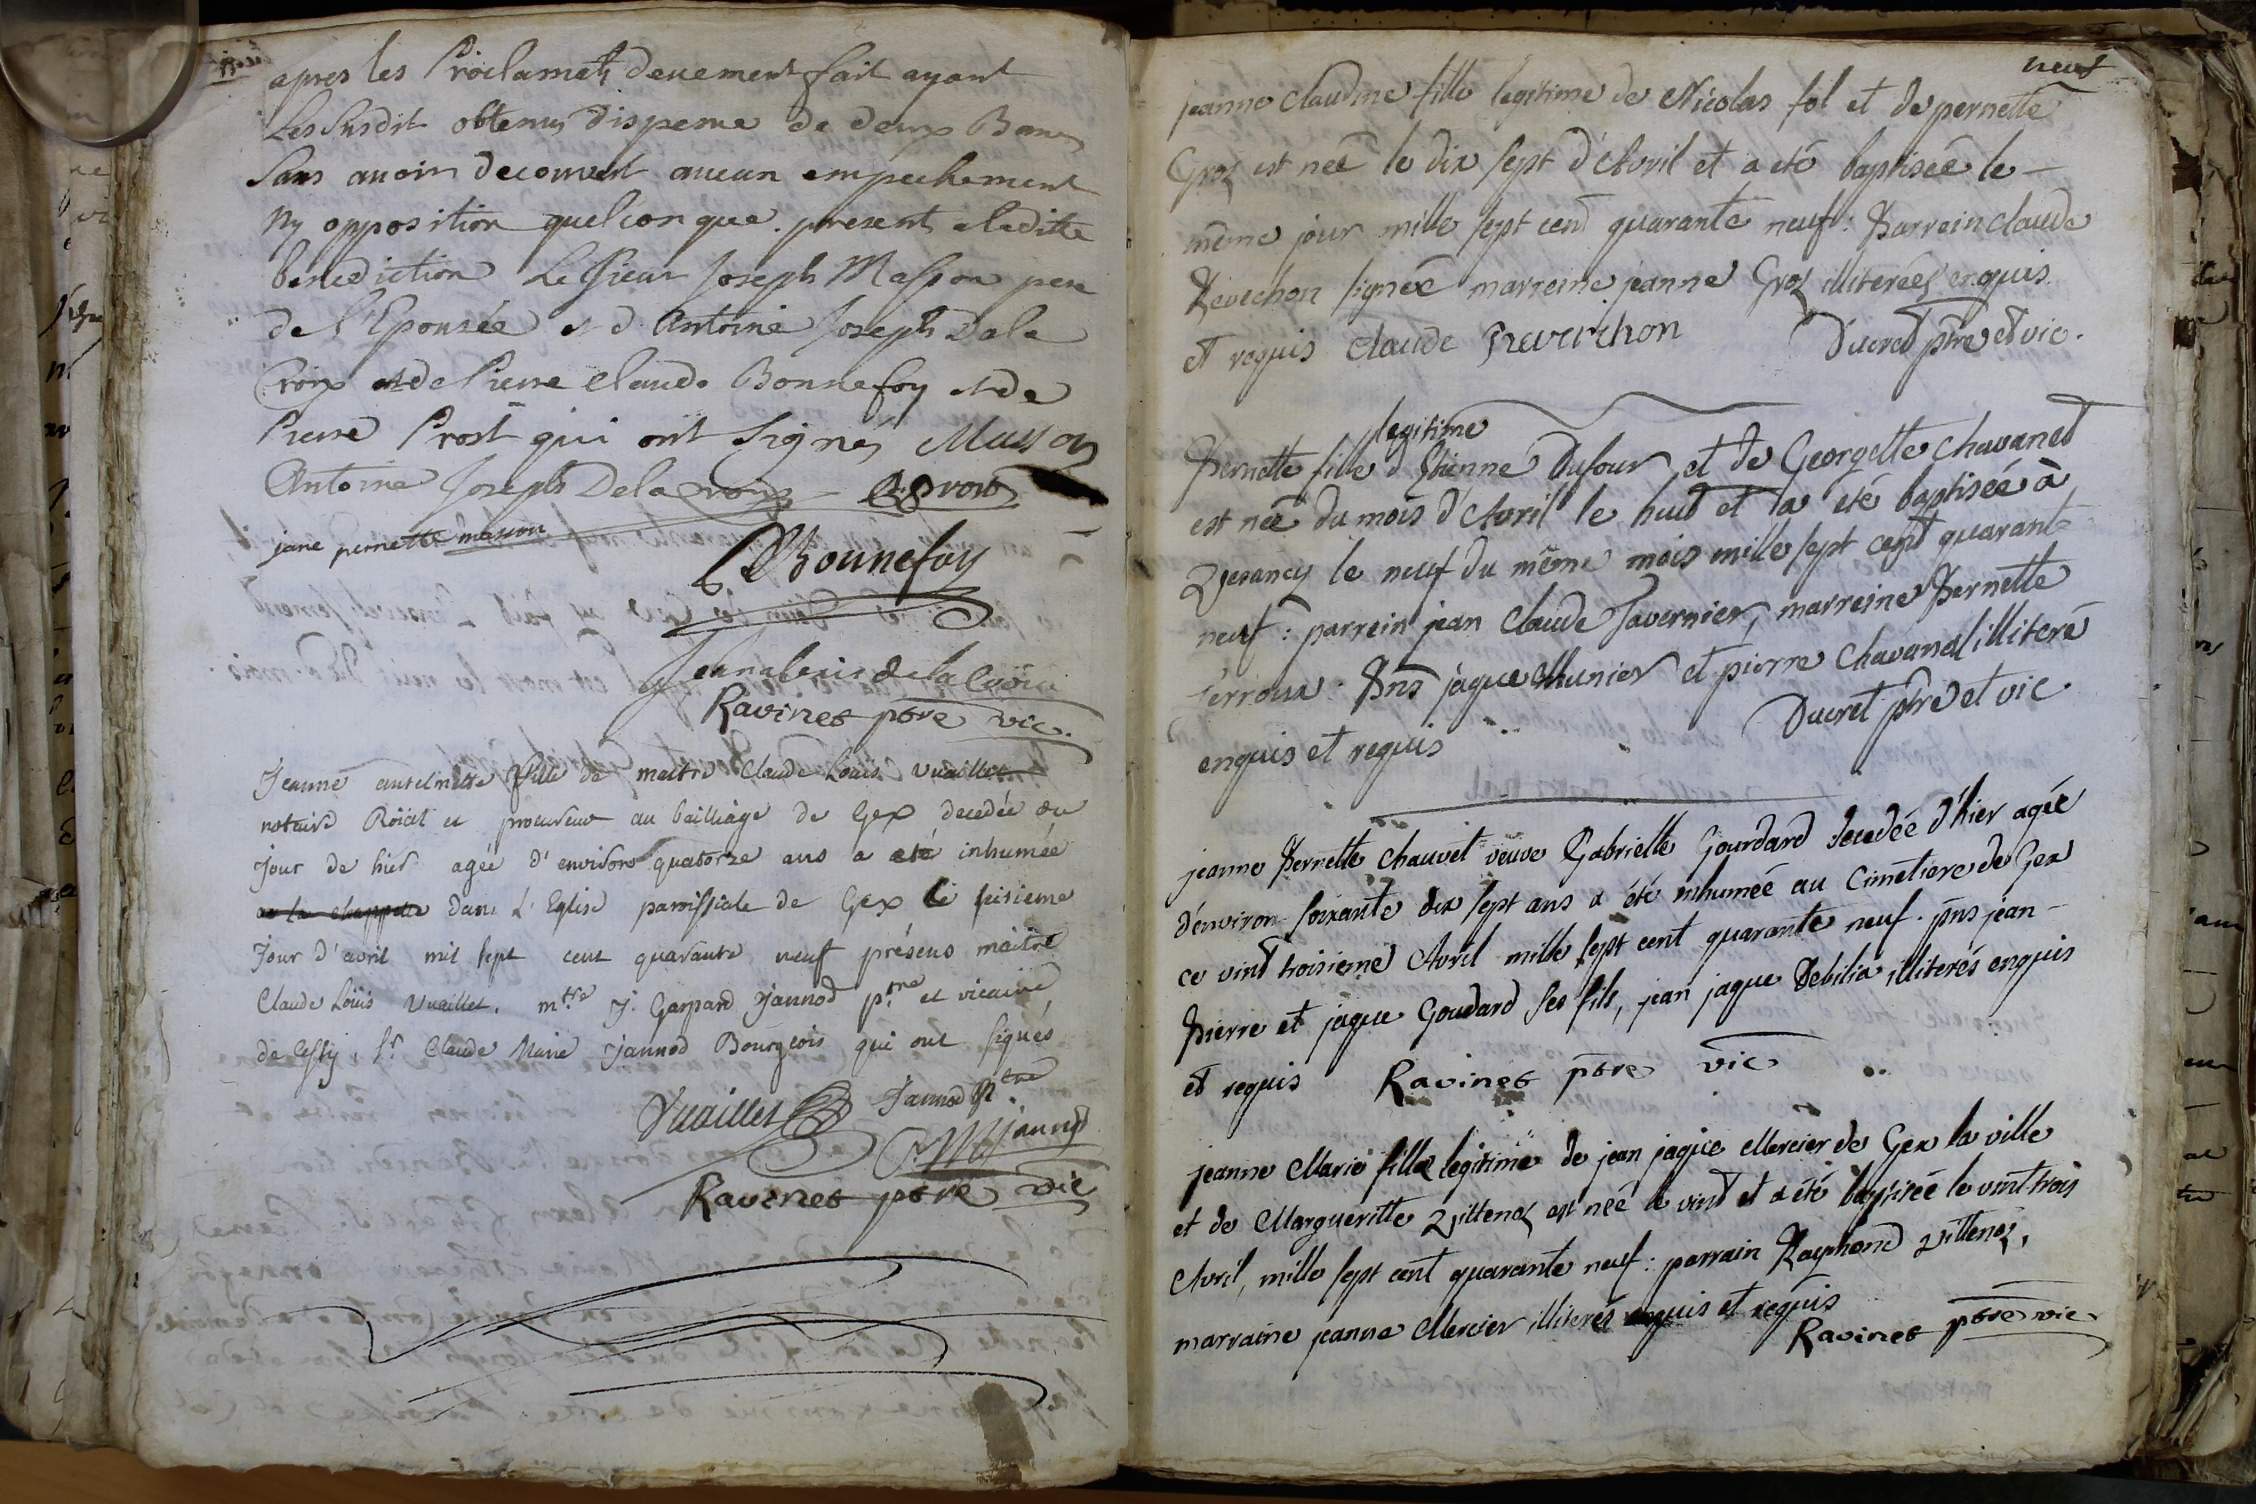 apres les Proclamats deuement fait ayant
Les Susdit obtenus dispense de deux Bans
Sans auoir decouvert aucun empechement
ny opposition quelconque. present a ladite
benediction Le Sieur Joseph Masson pere
de l'Epousée et d Antoine Joseph Dela
Croix et de Pierre Claude Bonnefoy et de
Pierre Prost qui ont Signés Masson
Antoine Joseph Delacroix P Prost
jane pernette masson
Bonnefoy
de la Croix
Ravinet ptre vic.
Jeanne antelmette fille de maitre Claude Louis Vuaillet
notaire Roïal et procureur au bailliage de Gex decedée du
Jour de hier agée d'environ quatorze ans a eté inhumée
en la chappelle dans L'Eglise parroissiale de Gex le seisieme
Jour d'avril mil sept cent quarante neuf présens maitre
Claude Loüis Vuaillet. mtre J. Gaspard Jannod ptre et vicaire
de Cessy, Sr Claude Marie Jannod Bourgeois qui ont signés
Vuaillet Jannod Ptre
CM Jannod
Ravinet ptre vic
neuf
jeanne claudine fille legitime de Nicolas fol et de pernette
Groz est neé le dix sept d'Avril et a eté baptiseé le -
même jour mille sept cent quarante neuf: Parrein claude
Revechon signeé marreine jeanne Groz illitereés enquis
et requis Claude Revurchon Ducret ptre et vic.
legitime
Pernette fille d'Etienne Dufour et de Georgette Chavanet
est neé du mois d'Avril le huit et a eté baptiseé à
Vesancy le neuf du même mois mille sept cent quarante
neuf: parrein jean Claude Tavernier, marreine Pernette
Perroux. Pns jaque Munier et pierre Chavanet illiteré
enquis et requis Ducret ptre et vic.
jeanne Pernette Chauvet veuve Gabrielle Gourdard decedeé d'hier ageé
d'environ soixante dix sept ans a été inhumeé au Cimetiere de Gex
ce vint troisieme Avril mille sept cent quarante neuf. pns jean -
Pierre et jaque Goudard ses fils, jean jaque Debilia illiterés enquis
et requis Ravinet ptre vic
jeanne Marie fille legitime de jean jaque Mercier de Gex la ville
et de Marguerite Vittenez est neé le vint et a été baptiseé le vint trois
Avril, mille sept cent quarante neuf: parrain Raymond Vittenez,
marraine jeanne Mercier illiterés enquis et requis
Ravinet ptre vic